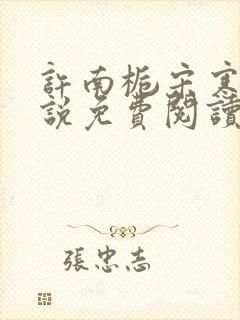 許南梔宋寒
說免費閱讀
張忠志